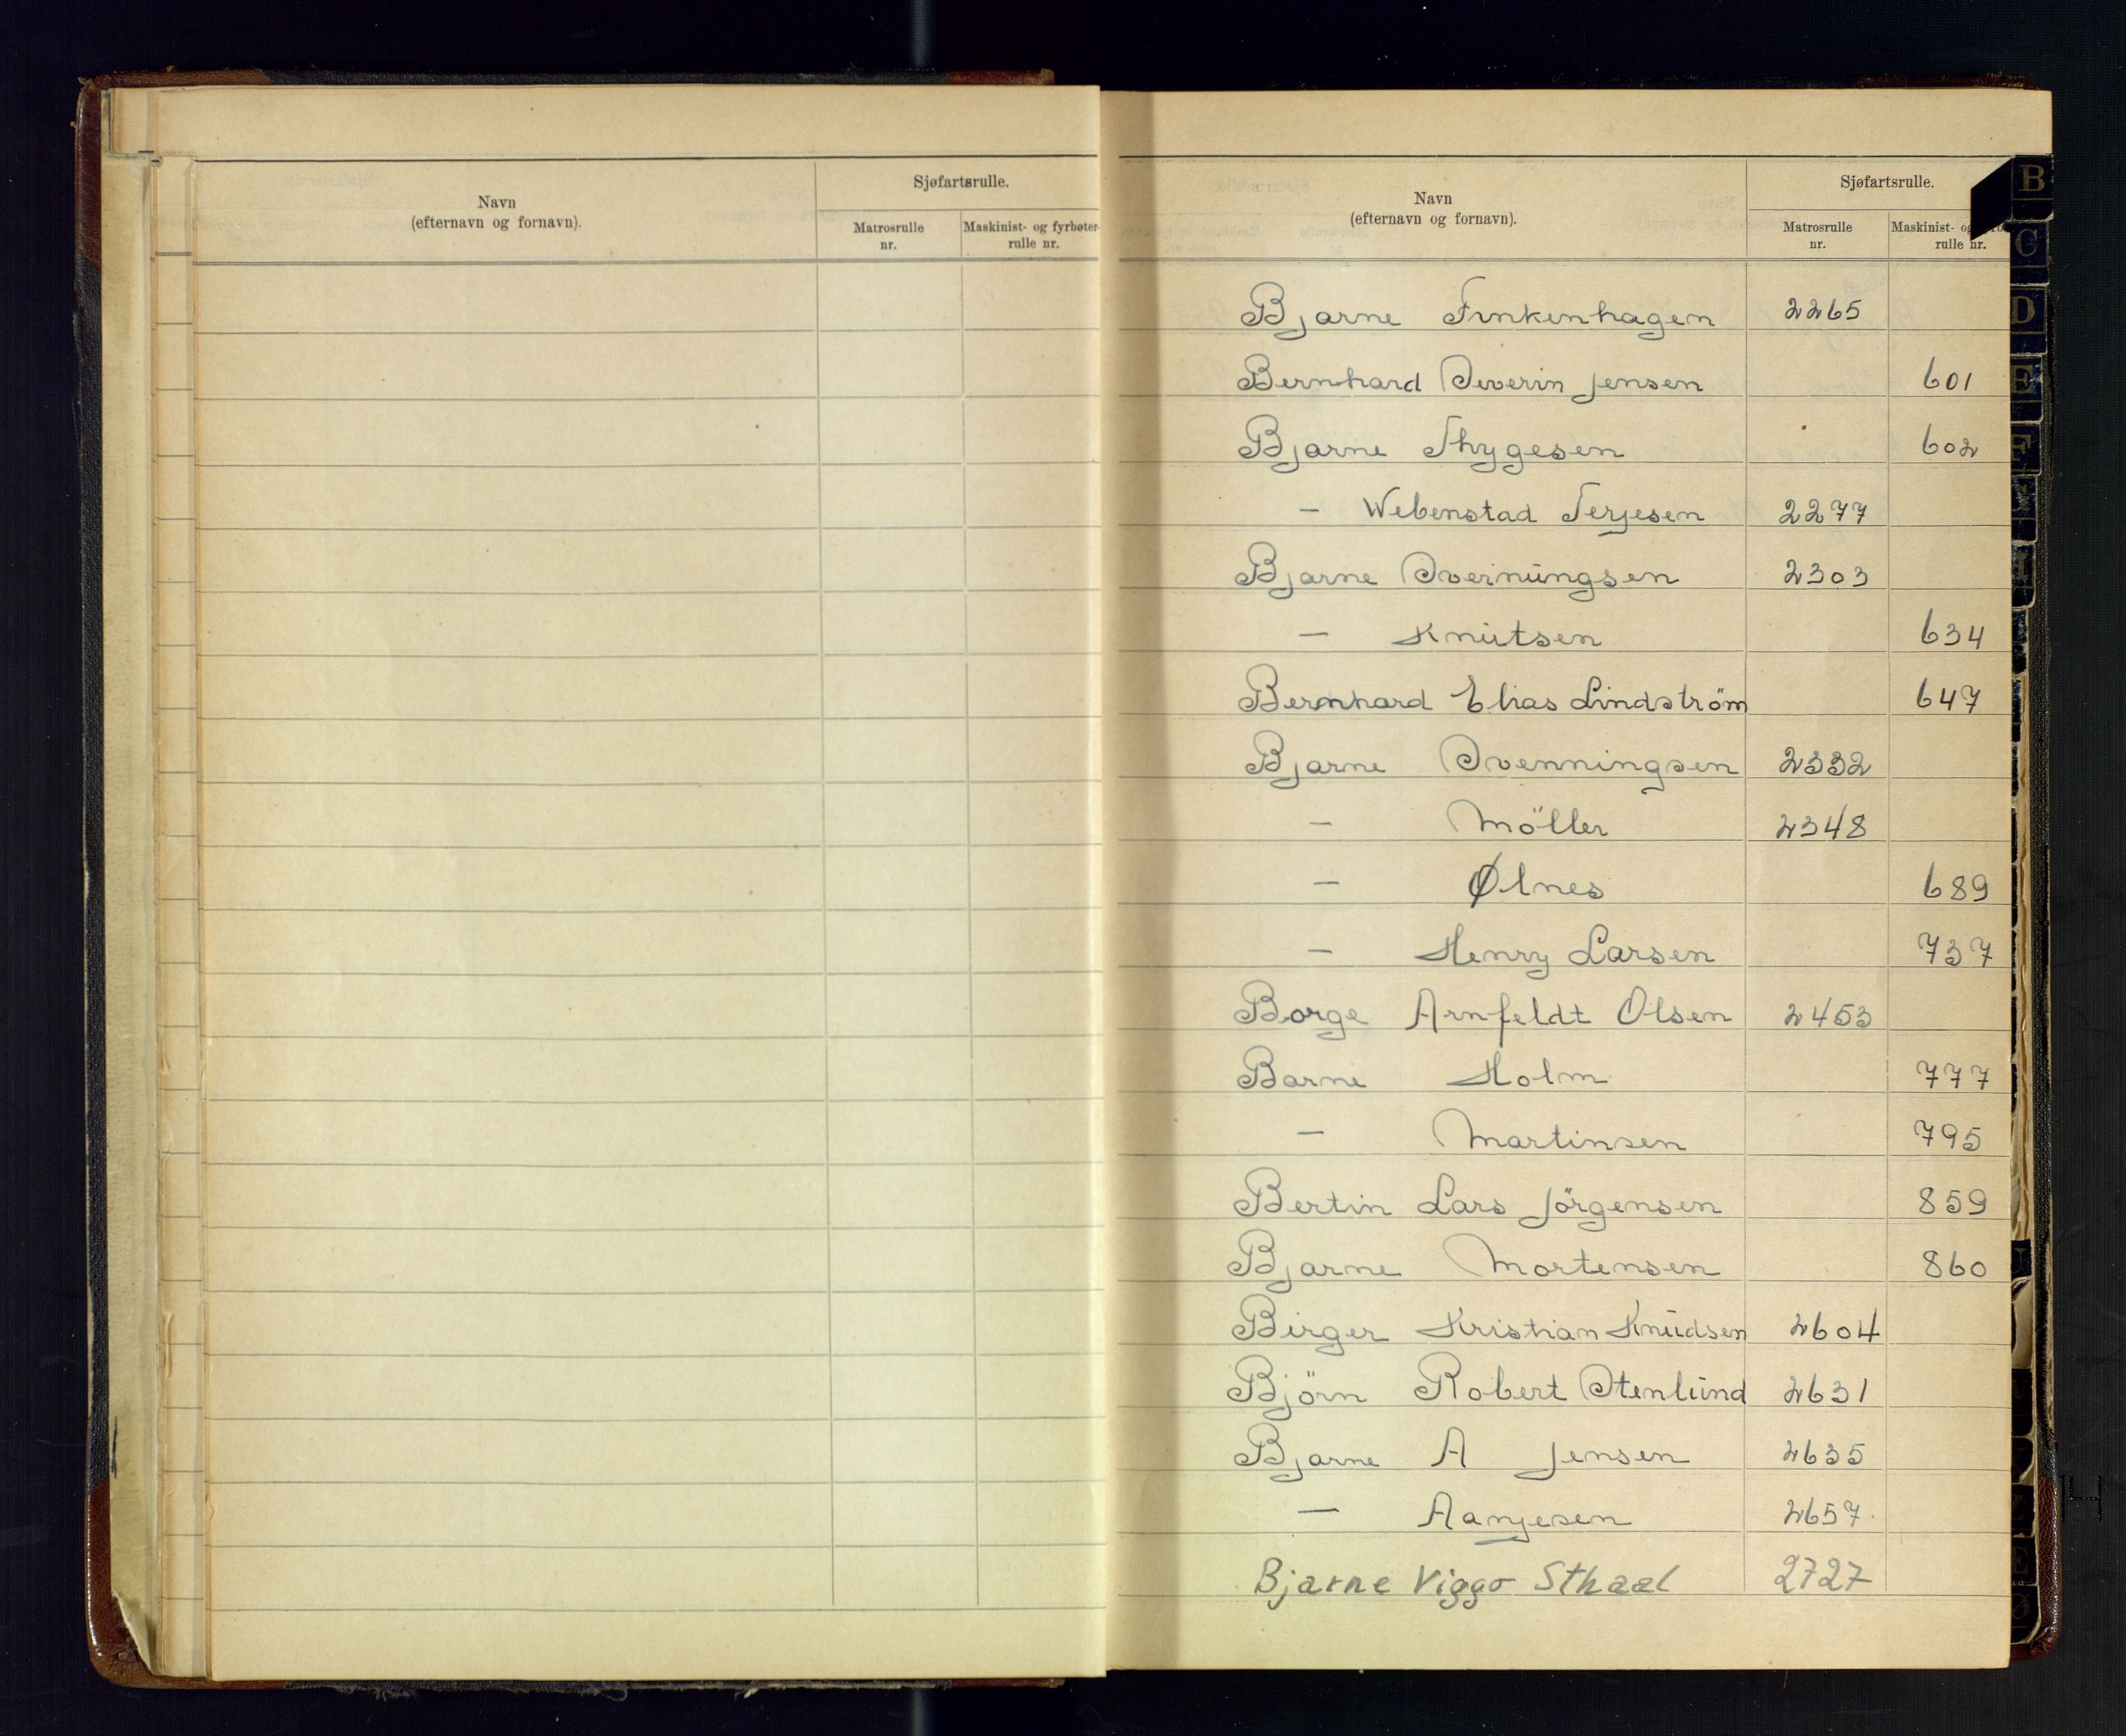 Navn
(efternavn og fornavn).
Sjøfartsrulle.
Matrosrulle
nr.
Maskinist- og fyrbøter-
rulle nr.
Navn
(efternavn og fornavn).
Sjøfartsrulle.
Matrosrulle
nr.
Maskinist- og
rulle nr.
Bjarne Finkenhagen 2265
Bernhard Severin Jensen 601
Bjarne Thygesen 602
— Webenstad Terjesen 2277
Bjarne Svernŭngsen 2303
— Knŭtsen 634
Bernhard Elias Lindström 647
Bjarne Svenningsen 2332
— Möller 2348
— Ølnes 689
— Henry Larsen 737
Borge Arnfeldt Olsen 2453
Barne Holm 777
— Martinsen 795
Bertin Lars Jörgensen 859
Bjarne Mortensen 860
Birger Kristian Knŭdsen 2604
Björn Robert Stenlŭnd 2631
Bjarne A Jensen 2635
— Aanjesen 2657
Bjarne Viggo Sthaal 2727
B
C
D
E
F